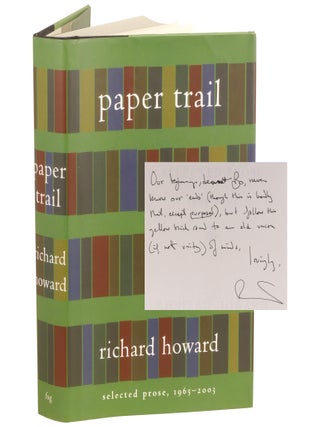 paper trail
paper
trail
richard
howard
fsg
richard howard
selected prose, 1963-2003
Our beginnings, dearest Bo, never
know our 'ends' (though this is hardly
that, except purposes), but follow this
yellow brick road to an old union
(if not unity) of minds.
lovingly,